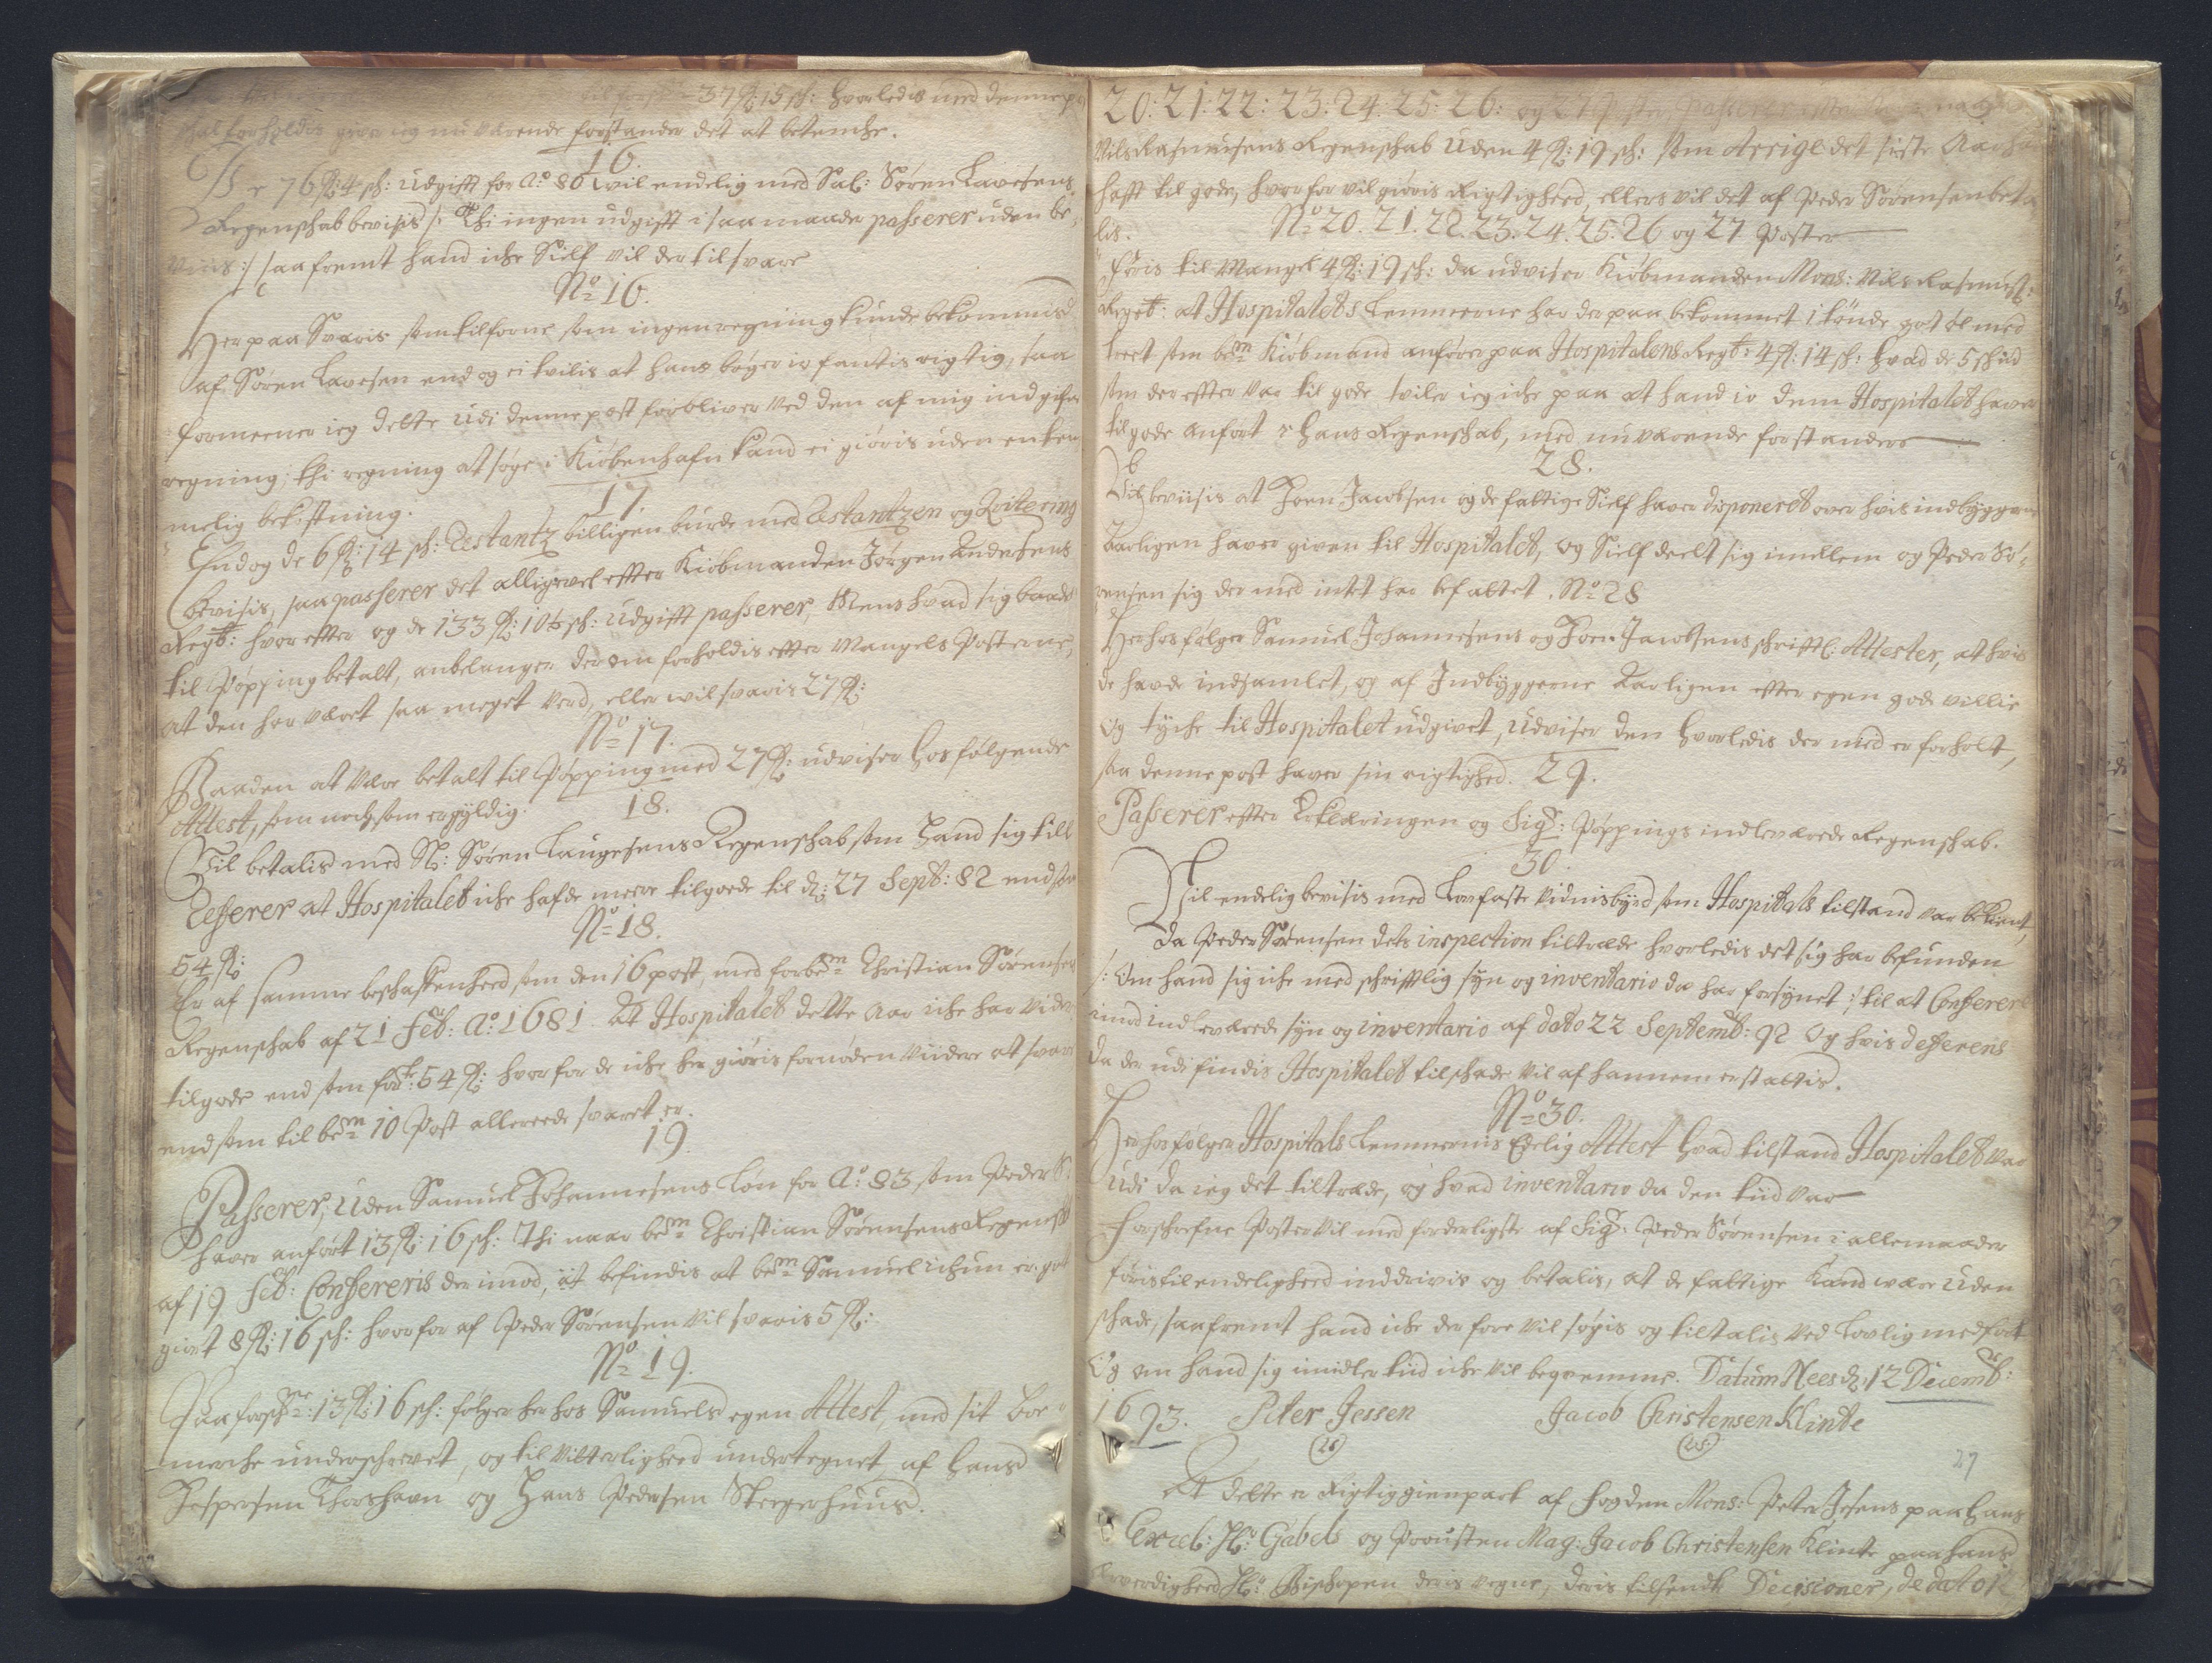 37 : 15 sk: hvorledis med denne
forholdis giver ieg nu værende forstander det at betenche.
16.
De 76 : 4 sk: udgifft for Ao: 80 vil endelig med Sal: Søren Lavesens
Regenskab bevisis /: Thi ingen udgifft i saa maade passerer uden be-
viis :/ saa fremt hand iche Sielf vil der til svare
No 16.
Her paa Svaris som tilforne som ingen regning kunde bekommis
af Søren Lavesen end og ei tvilis at hans bøger io fantis rigtig, saa
formeener ieg dette udi denne post forbliver ved den af mig indgifne
regning; thi regning at søge i Kiøbenhafn kand ei giøris uden en ken-
melig bekostning.
17.
End og de 6 : 14 sk: Restantz billigen burde med Restantzen og Qvitering
bevisis, saa passerer det alligevel effter Kiøbmanden Jørgen Andersens
Regb: hvor effter og de 133 : 10½ sk: udgifft passerer, Mens hvad sig baade
til Pøpping betalt, anbelanger derom forholdis effter Mangels Posterne,
at den har været saa meget verd, eller vil svaris 27
No 17.
Baaden at være betalt til Pøpping med 27 udviser hos følgende
Attest, som noch som er gyldig.
18.
Vil betalis med Sl: Søren Laugesens Regenskab som hand sig till
Refferer at Hospitalet iche hafde meere tilgode til d: 27 Sept: 82 end som
54
No 18.
Er af samme beskaffenheed som den 16 post, med forbem Christian Sørensens
Regenskab af 21 Feb: Ao: 1681. At Hospitalet dette Aar iche har vider
tilgode end som for: 54 hvor for de iche her giøris fornøden viidere at svare
end som til bem 10 Post allereede svaret er.
19.
Passerer, uden Samuel Johannesens Løn for Ao: 83 som Peder S:
haver anført 13 : 16 sk: Thi naar bem Christian Sørensens Regensk
af 19 Feb: Confereris der imod, at befindis at bem Samuel ichun er got
giort 8 : 16 sk: hvorfor af Peder Sørensen vil svaris 5
No 19.
Paa forschr: 13 : 16 sk: følger her hos Samuels egen Attest, med sit Boe
merche underschrevet, og til Vitterligheed undertegnet af Hans
Jespersen Thorshavn og Hans Pedersen Steegerhuus.
20: 21: 22: 23: 24: 25: 26: og 27 passerer effter
Nils Rasmusens Regenskab uden 4 : 19 sk: som Arrige det siste Aar har
hafft til gode, hvor for vil giøris Rigtigheed, ellers vil det af Peder Sørensen beta-
lis.
No 20. 21. 22. 23. 24. 25. 26 og 27 Poster
Føris til Mangel 4 : 19 sk: da udviser Kiøbmanden Mons: Nils Rasmus:
Regt: at Hospitalets Lemmerne har der paa bekommet 1 tønde got øl med
træet som bem Kiøbmand anfører paa Hospitalens Regt: 4 : 14 sk: hvad de 5 skind
som der effter var til gode tviler ieg iche paa at hand io dem Hospitalet haver
tilgode anført i hans Regenskab, med nu værende forstander
28.
Vil beviisis at Joen Jacobsen og de fattige Sielf haver disponeret over hvis indbyggerne
Aarligen haver given til Hospitalet, og Sielf deelt sig imellem og Peder Sø-
rensen sig der med intet har befattet. No 28
Her hos følger Samuel Johannesens og Joen Jacobsens skrifftl: Attester, at hvis
de havde indsamlet, og af Indbyggerne Aarligen effter egen gode villie
og tyche til Hospitalet udgivet, udviser den hvorledis der med er forholt,
saa denne post haver sin rigtighed. 29.
Passerer effter Erklæringen og Sigr: Pøppings indleverede Regenskab.
30.
Vil endelig bevisis med Lovfaste vidnisbyrd som Hospitals tilstand var bekient,
da Peder Sørensen dets inspection tiltræde hvorledis det sig har befunden
/: om hand sig iche med skrifftlig syn og inventario da har forsynet :/ til at Confererer
imod indleverede syn og inventario af dato 22 Septemb: 92 og hvis defferens
da der udi findis Hospitalet til skade vil af hannem erstattis.
No 30.
Her hos følger Hospitals Lemmernis Edelig Attest hvad tilstand Hospitalet var
udi da ieg det tiltræde, og hvad inventario da den tiid var
Forschrefne Poster vil med forderligste af Sigr: Peder Sørensen i alle maader
føris til endeligheed inddrivis og betalis, at de fattige kand være uden
skade, saa fremt hand iche der fore vil søgis og tiltalis ved lovlig medfart
og om hand sig imidlertiid iche vil beqvemme. Datum Nees d: 12 Decemb:
1693. Peter Jessen Jacob Christensen Klinte
(LS) (LS)
27
At dette er Rigtig gienpart af fogden Mons: Peter Jesens paa hans
Excel: Hr: Gabels og Prousten Mag: Jacob Christensen Klinte paa hans
Ærverdigheed Hr: Bischopen deris vegne, deris tilsendte Decisioner, de dato 12